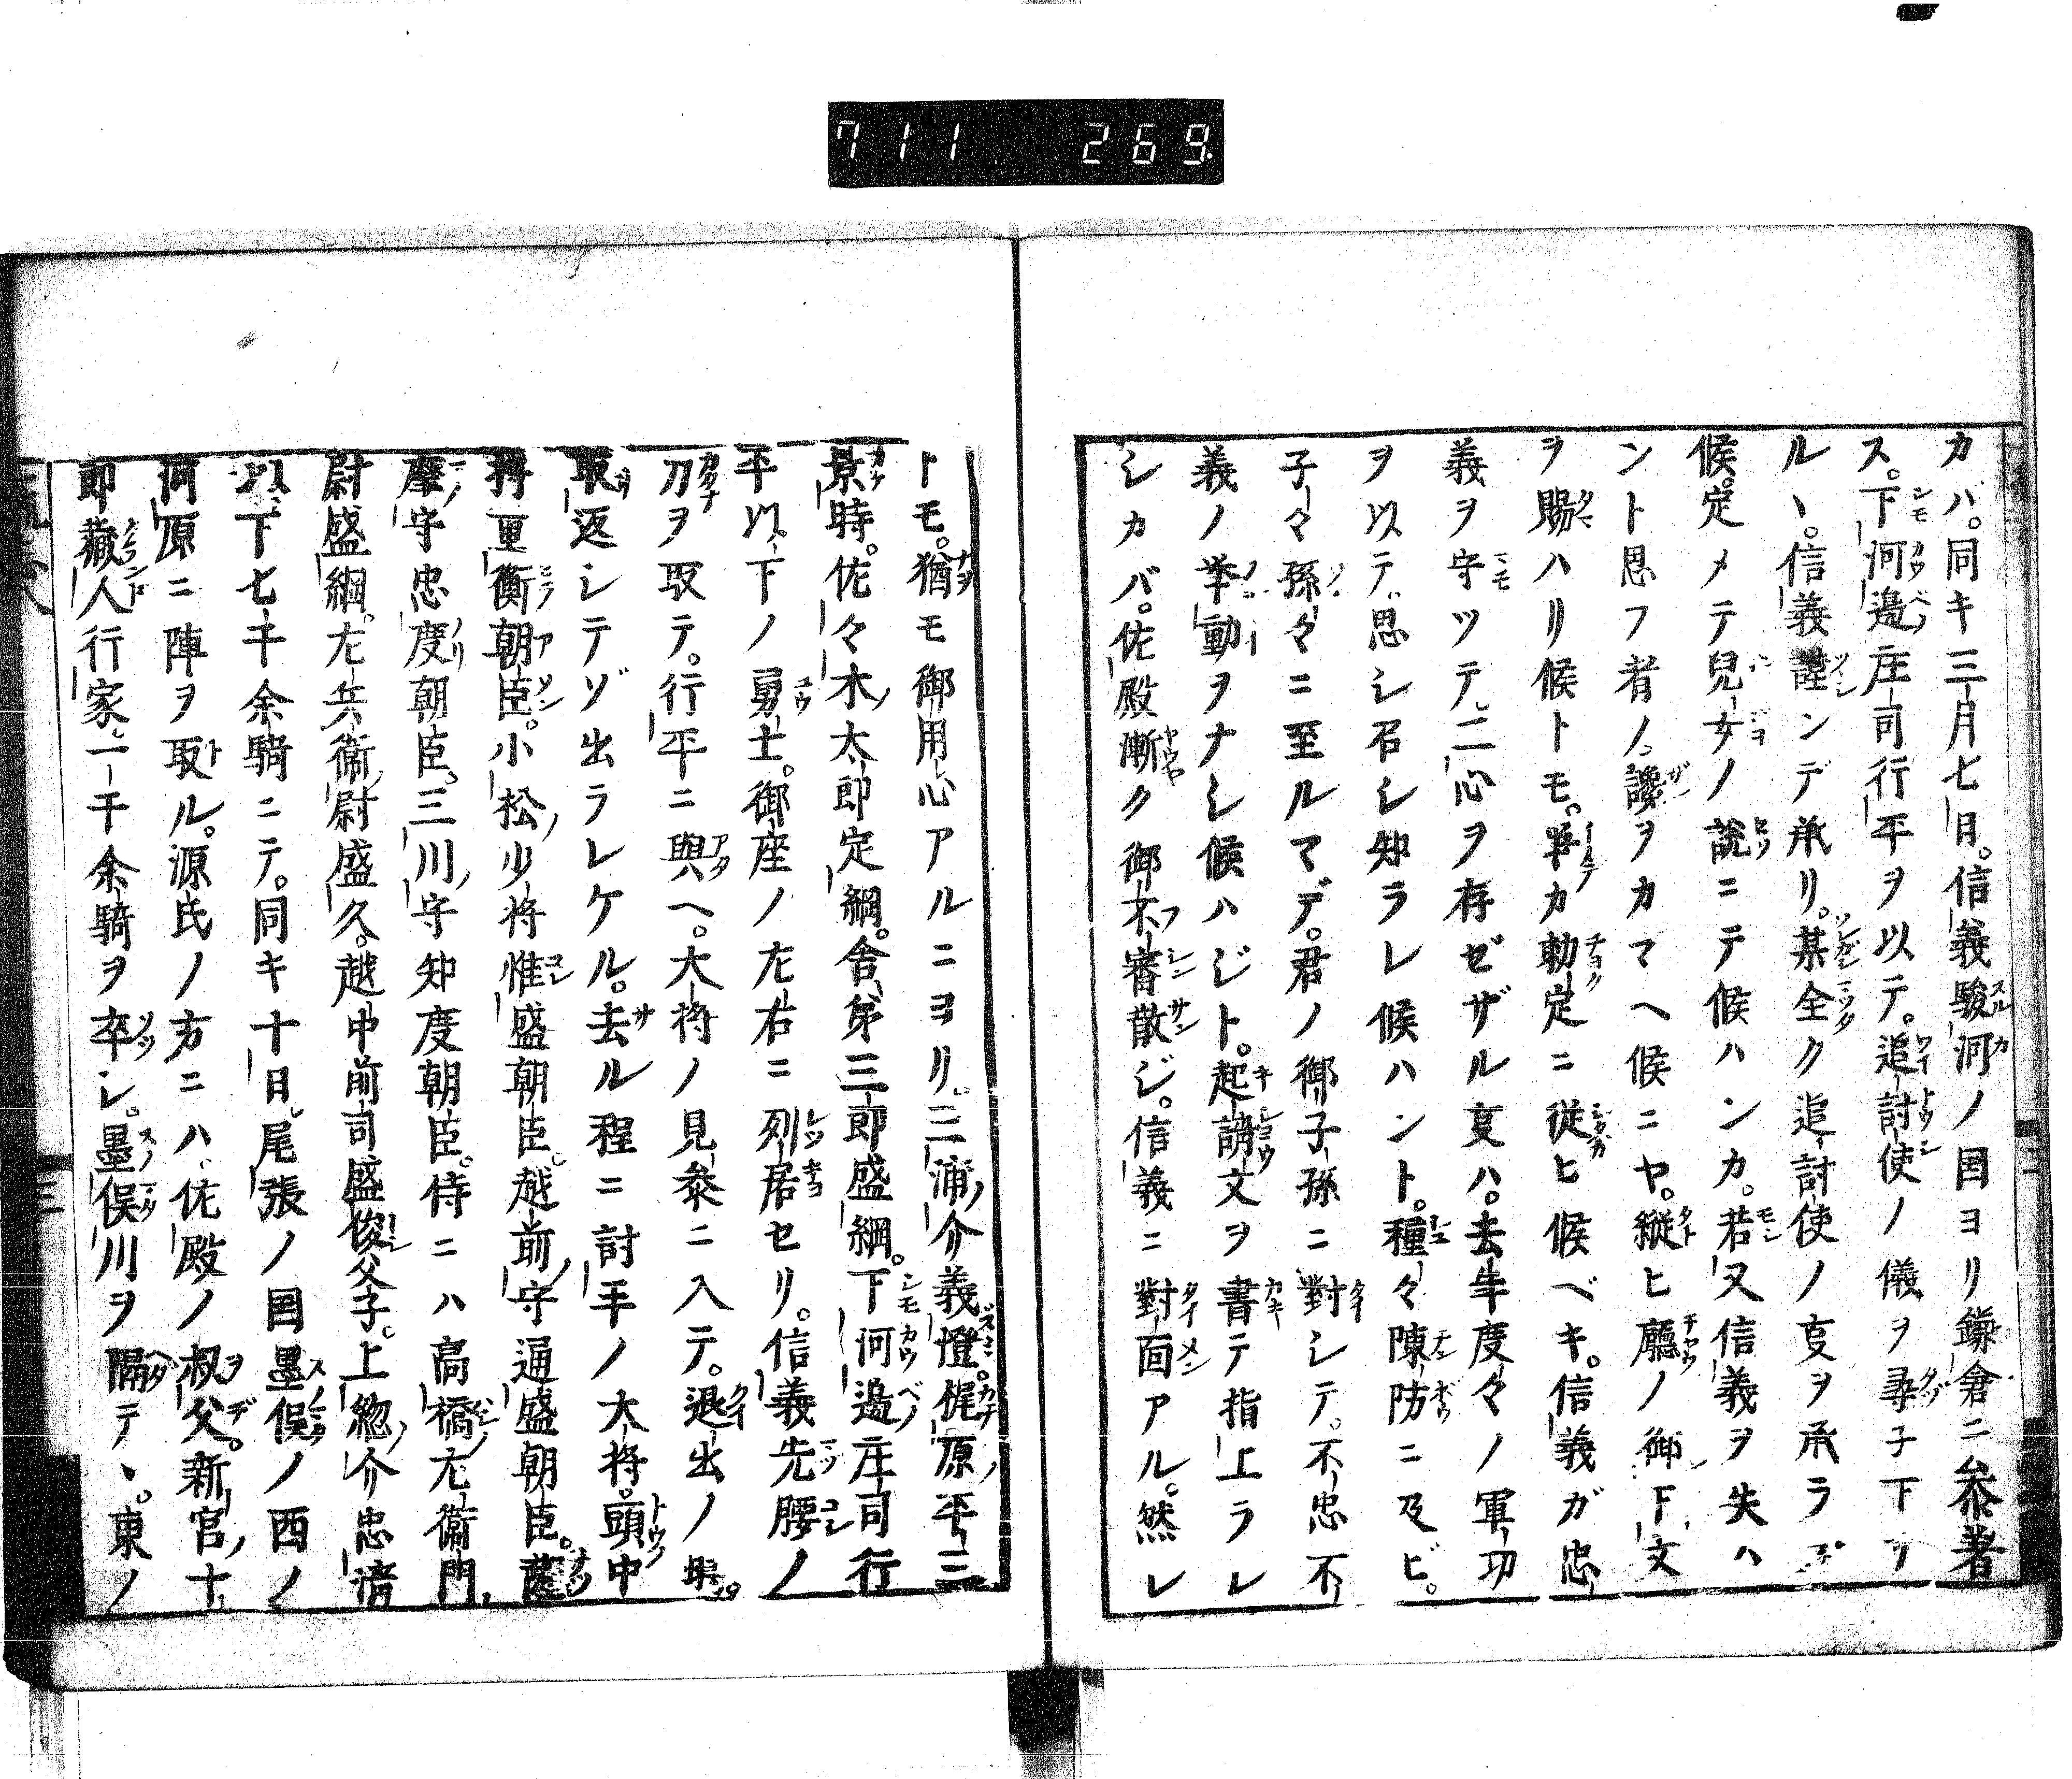 711 269
カバ。同キ三月七日。信義駿河ノ国ヨリ鎌倉ニ参著
ス。下河邉庄司行平ヲ以テ。追討使ノ儀ヲ尋子下
ルヽ。信義謹ンデ承リ。某全ク追討使ノ夏ヲ承ラ
候。定メテ兒女ノ説ニテ候ハンカ。若又信義ヲ失ハ
ント思フ者ノ讒ヲカマヘ候ニヤ。縦ヒ廳ノ御下文
ヲ賜ハリ候トモ。争カ勅定ニ従ヒ候ベキ。信義ガ忠
義ヲ守ツテ。二心ヲ存ゼザル夏ハ。去年度々ノ軍功
ヲ以テ思シ召シ知ラレ候ハント。種々陳防ニ及ビ。
子々孫々ニ至ルマデ。君ノ御子孫ニ對シテ。不忠不
義ノ挙動ヲナシ候ハジト。起請文ヲ書テ指上ラレ
シカバ。佐殿漸ク御不審散ジ。信義ニ對面アル。然レ
トモ。猶モ御用心アルニヨリ。三浦ノ介義澄。梶原ノ平三
景時。佐々木太郎定綱。舎弟三郎盛綱。下河邉庄司行
平以下ノ勇士。御座ノ左右ニ列居セリ。信義先腰ノ
刀ヲ取テ。行平ニ與ヘ。大将ノ見参ニ入テ。退出ノ時
取返シテゾ出ラレケル。去ル程ニ討手ノ大将。頭中
将重衡朝臣。小松ノ少将惟盛朝臣。越前ノ守通盛朝臣。薩
摩ノ守忠度朝臣。三川ノ守知度朝臣。侍ニハ高橋左衛門
尉盛綱。左兵衛ノ尉盛久。越中前司盛俊父子。上総ノ介忠清
以下七千余騎ニテ。同キ十日。尾張ノ国墨俣ノ西ノ
河原ニ陣ヲ取ル。源氏ノ方ニハ。佐殿ノ叔父。新宮ノ十
郎蔵人行家一千余騎ヲ卒シ。墨俣川ヲ隔テヽ。東ノ
三